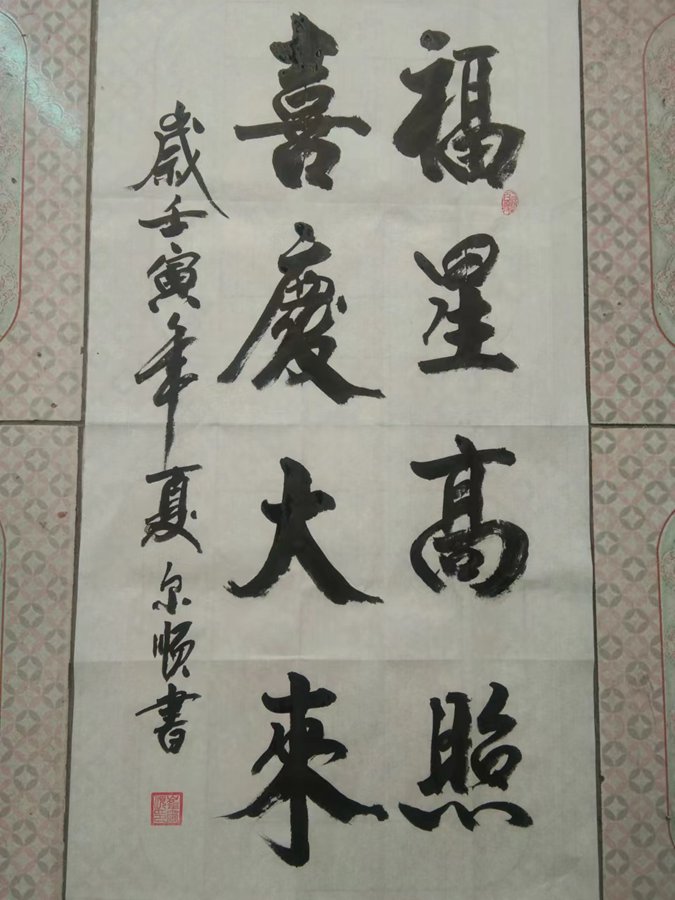 福星高照
喜慶大來
歲壬寅年夏泉順書